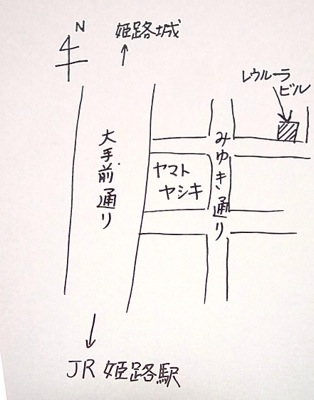 N
姫路城
レウルーラ
ビル
大手前通り
ヤマト
ヤシキ
みゆき通り
JR 姫路駅